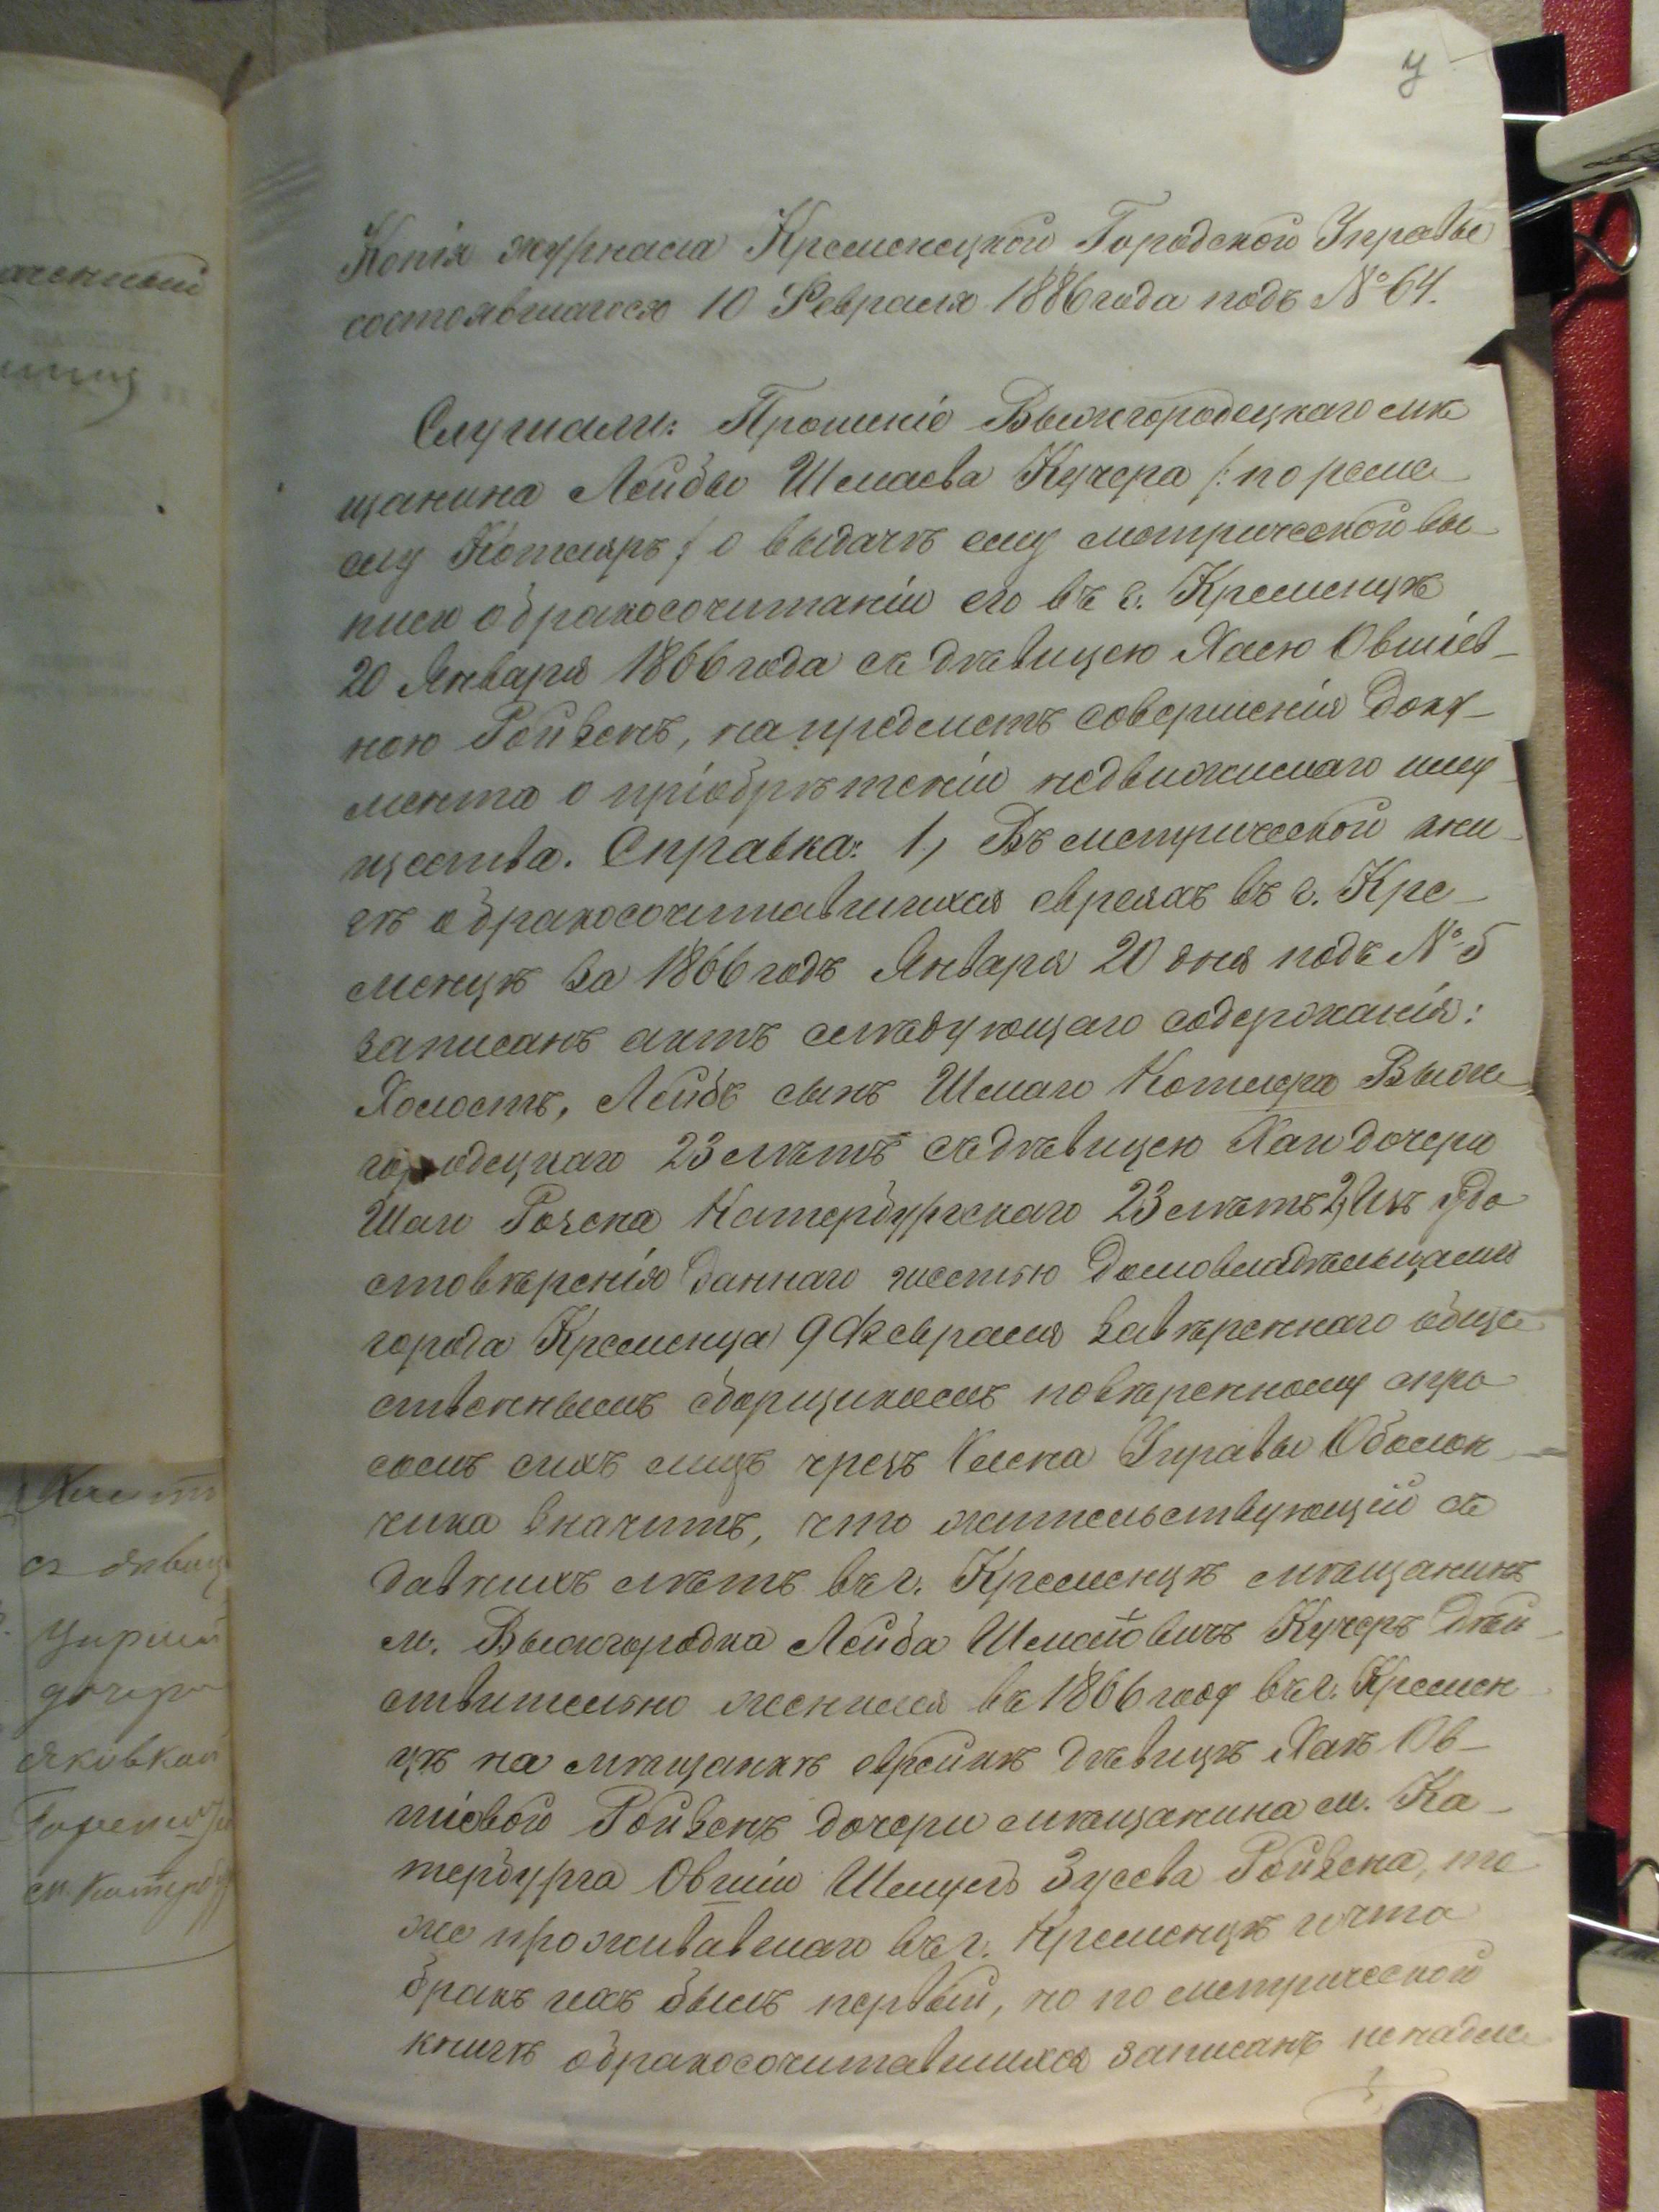 У
Копія журнала Кременецкой Городской Управы
состоявшагося 10 Февраля 1886 года подъ № 64.
Слушали: Прошеніе Вышгородецкаго мѣ
щанина Лейбы Шмаева Кучера /: по реме
слу Котляръ :/ о выдачѣ ему метрической вы-
писи о бракосочитаніи его въ г. Кременцѣ
20 Января 1866 года съ дѣвицею Хаею Овшіев-
ною Ройзенъ, на предметъ совершенія доку-
мента о пріобрѣтеніи недвижимаго иму-
щества. Справка: 1, Въ метрической кни-
гѣ о бракосочитавшихся евреяхъ въ г. Кре-
менцѣ за 1866 годъ Января 20 дня подъ № 5
записанъ актъ слѣдующаго содержанія:
Холостъ, Лейбъ сынъ Шмаго Котляра Выж
городецкаго 23 лѣтъ съ дѣвицею Хаи дочери
Шаи Розена Катербургскаго 23 лѣтъ 2, Изъ удо
стовѣренія даннаго шестью домовладѣльцами
города Кременца 9 Февраля завѣреннаго обще
ственнымъ сборщикомъ повѣренному спро
сомъ сихъ лицъ чрезъ Члена Управы Оболон
чика значитъ, что жительствующій съ
давнихъ лѣтъ въ г. Кременцѣ мѣщанинъ
м. Вышгородка Лейба Шмайовичъ Кучеръ дѣй-
ствительно женился въ 1866 году въ г. Кремен
цѣ на мѣщанкѣ еврейкѣ дѣвицѣ Хаѣ Ов-
шіовой Ройзенъ дочери мѣщанина м. Ка-
тербурга Овшіи Шмуеля Зусева Ройзена, то
же проживавшаго въ г. Кременцѣ и что
бракъ ихъ былъ первый, но по метрической
книгѣ о бракосочитавшихся записанъ ненадле